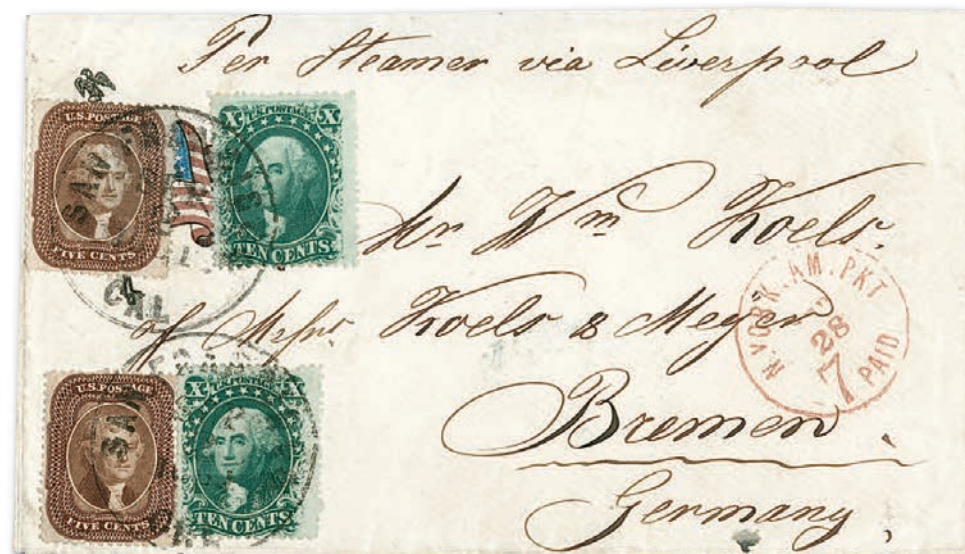 Per Steamer via Liverpool
U.S. POSTAGE
FIVE CENTS
X U.S. POSTAGE X
TEN CENTS
SAN
CAL
Mr Wm Koels.
of Messrs. Koels & Meyer
N.YORK. AM. PKT
28
7
PAID
U.S. POSTAGE
FIVE CENTS
X U.S. POSTAGE X
TEN CENTS
SAN
CAL
Bremen.
Germany,